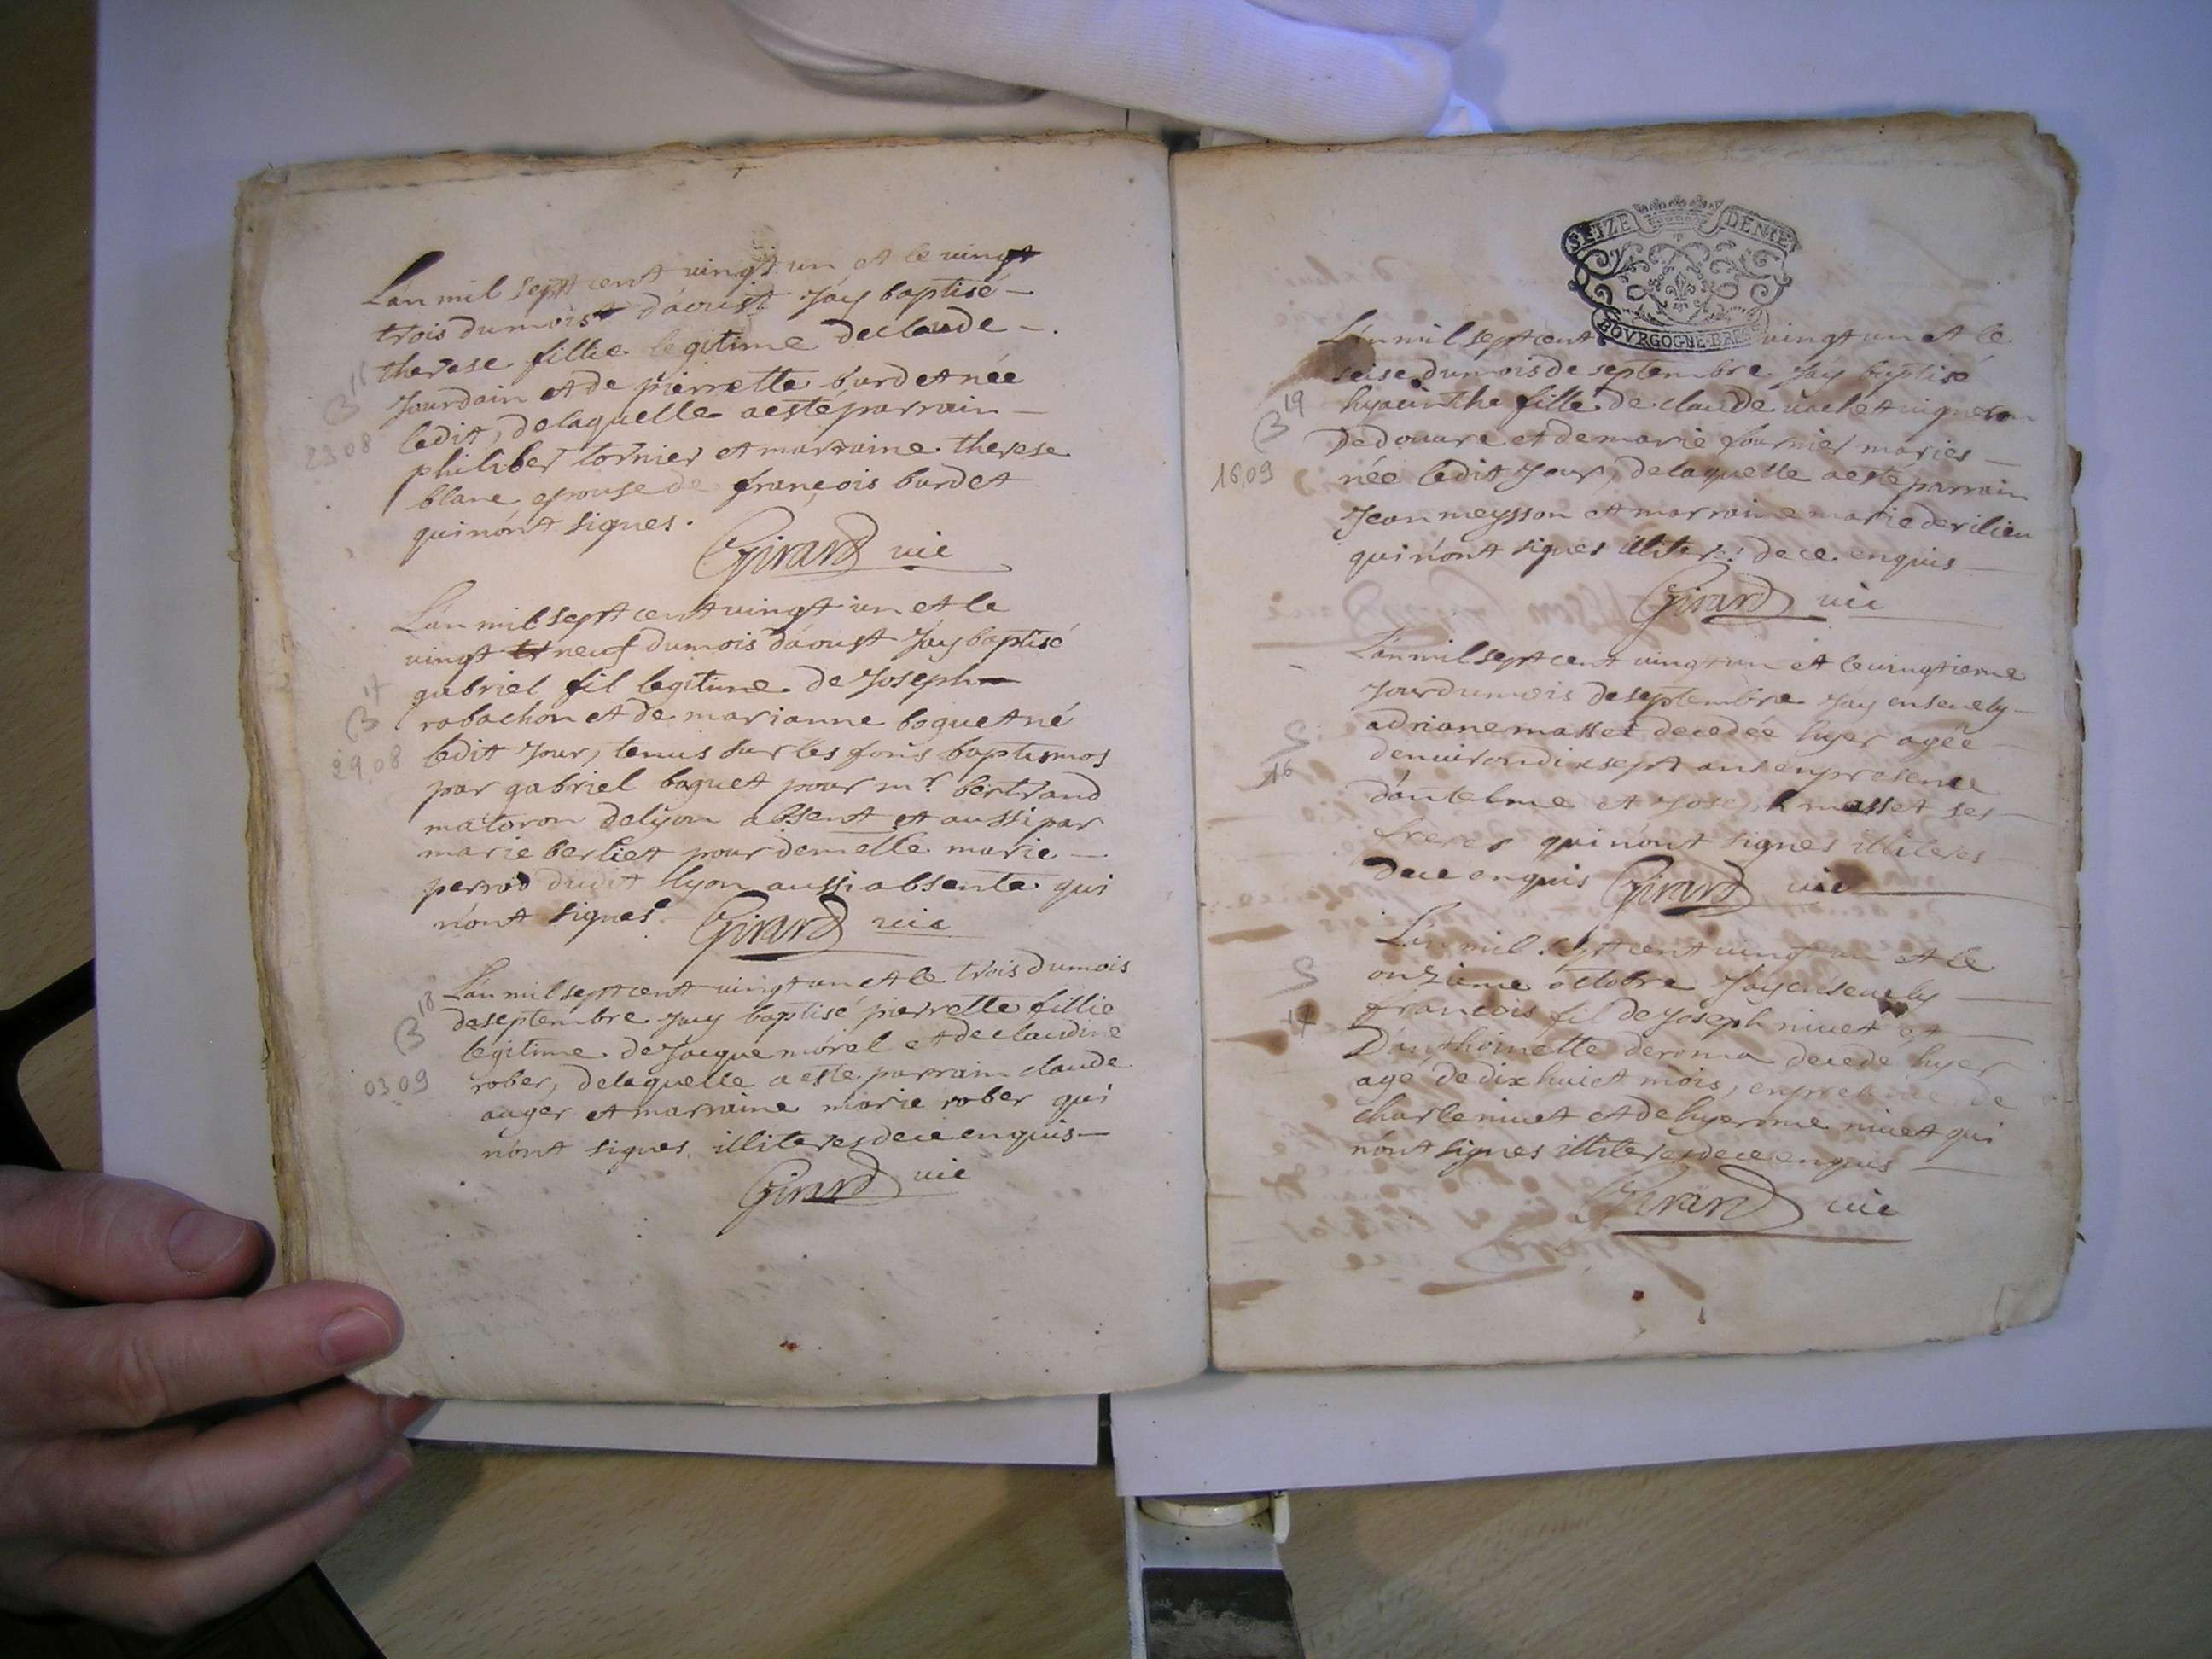 Lán mil sept cent vingt un et le vingt
trois du mois d'aoust J'ay baptisé
therese fillie legitime de claude
Jourdain et de pierrette burdet née
ledit, de laquelle a esté parrain
philiber tornier et marraine therese
blanc epouse de françois burdet
qui nónt signes.
Girard vic
B 16
23 08
Lán mil sept cent vingt un et le
vingt neuf du mois d'aoust J'ay baptisé
gabriel fil legitime de Joseph
robachon et de marianne boguet né
ledit Jour, tenus sur les fons baptismos
par gabriel boguet pour mr bertrand
matoron de lyon absent et aussi par
marie berliet pour demelle marie
perrod dudit lyon aussi absente qui
nónt signes. Girard vic
B 17
29.08
Lán mil sept cent vingt un et le trois du mois
de septembre J'ay baptisé pierrette fillie
legitime de Jacque morel et de claudine
rober, de laquelle a este parrain claude
auger et marraine marie rober qui
nónt signes illiteres de ce enquis
Girard vic
B 18
03.09
SEIZE DENIE
BOVRGOGNE BRESSE
Lán mil sept cent vingt un et le
seise du mois de septembre J'ay baptisé
hyacinthe fille de claude vachet vigneron
de douare et de marie fournier maries
née ledit Jour, de laquelle a esté parrain
Jean meysson et marraine marie derilieu
qui nónt signes illiter: de ce enquis
Girard vic
B 19
16.09
Lán mil sept cent vingt un et le vingtieme
Jour du mois de septembre J'ay ensevely
adriane masset decedée hyer agée
denviron dix sept ans en presence
dántelme et Joseph masset ses
freres qui nónt signes illiteres
de ce enquis Girard vic
S
16
Lán mil sept cent vingt un et le
onzieme octobre J'ay ensevely
francois fil de Joseph nivet et
Dánthoinette deroma decede hyer
agé de dix huict mois, en presence de
charle nivet et de hyerome nivet qui
nónt signes illiteres de ce enquis
Girard vic
S
17